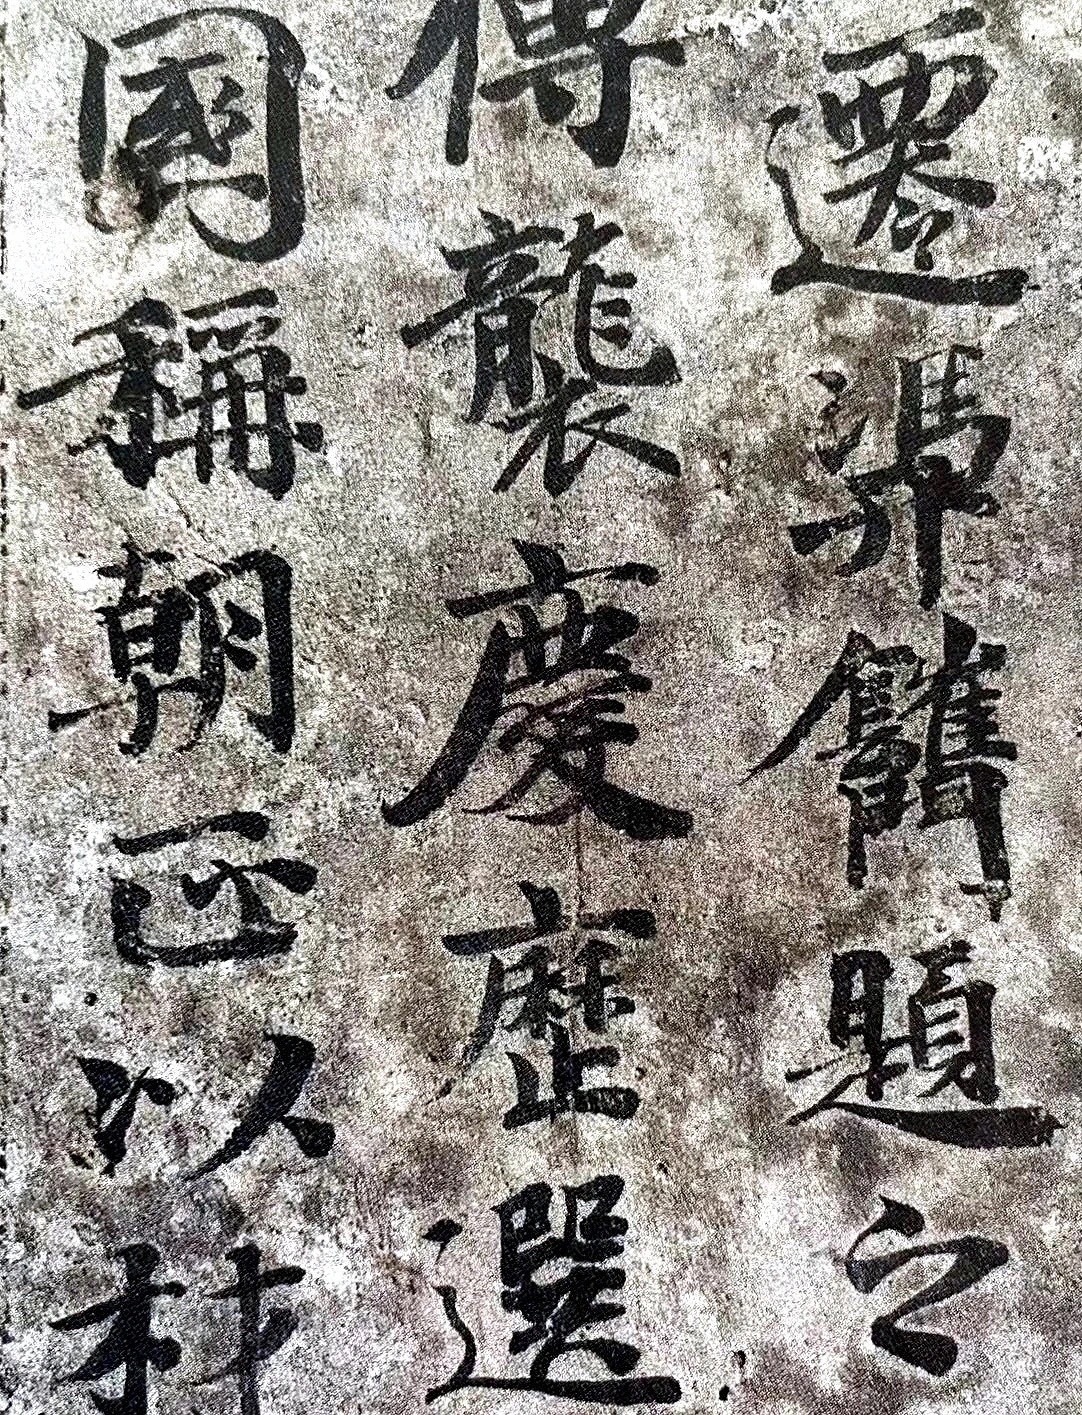 遷鐫題之
傳襲慶歷選
國稱朝正以材